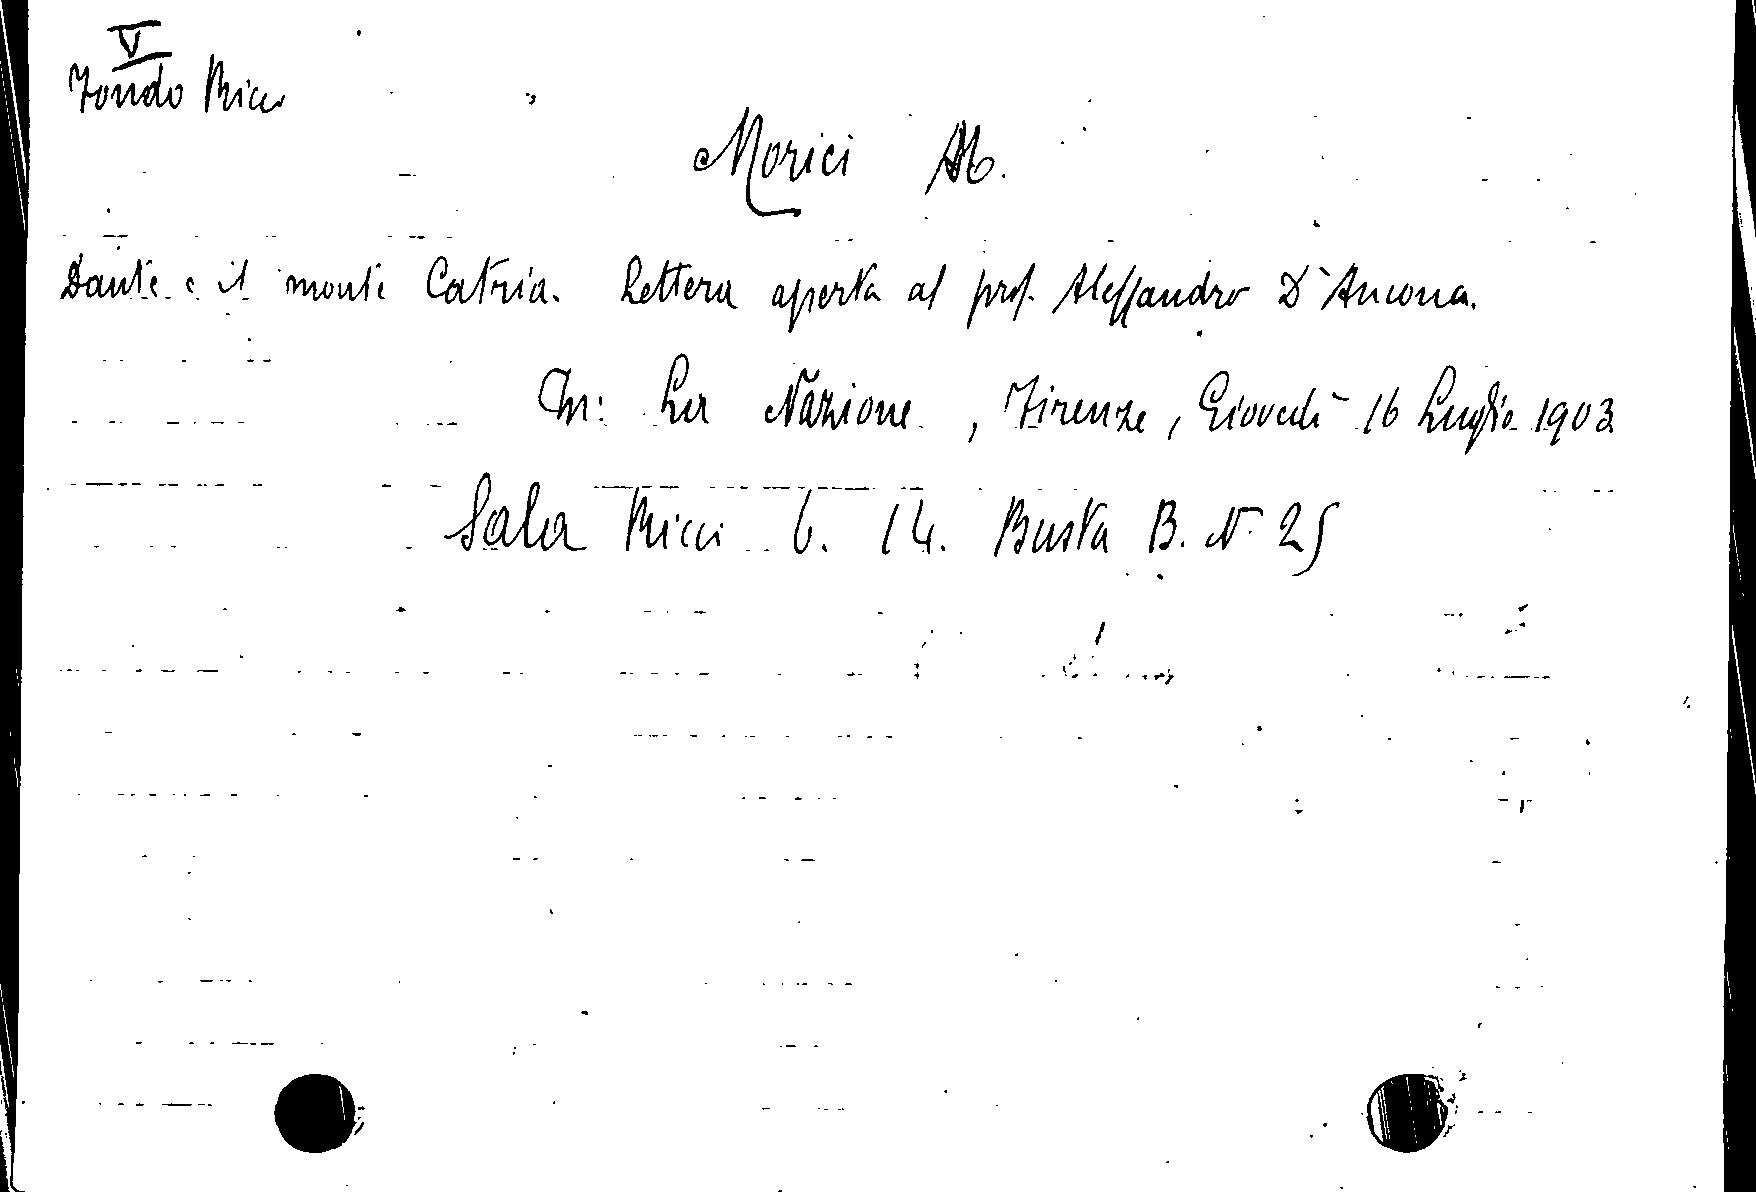 V
Fondo Ricci
Morici M.
Dante e il monte Catria. Lettera aperta al prof. Alessandro D'Ancona.
In: La Nazione, Firenze, Giovedì 16 Luglio 1903
Sala Ricci 6. 14. Busta B. N. 25